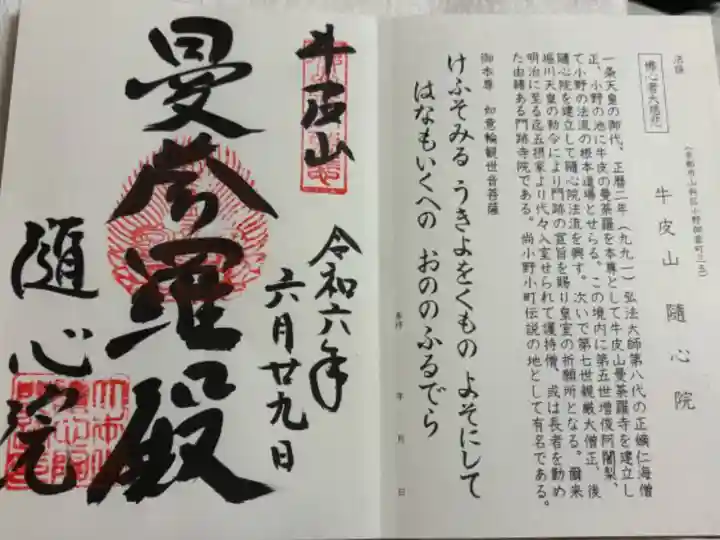 法語
佛心者大慈悲
(京都市山科区小野御霊町三五)
牛皮山 隨心院
一条天皇の御代、正暦二年(九九一)弘法大師第八代の正嫡仁海僧
正、小野の池に牛皮の曼荼羅を本尊として牛皮山曼荼羅寺を建立し
て小野の法流の根本道場とせらる。この境内に第五世増俊阿闍梨、
隨心院を建立して隨心院法流を興す。次いで第七世親厳大僧正、後
堀川天皇の勅命により門跡の宣旨を賜り皇室の祈願所となる。爾来
明治に至る迄五摂家より代々入室せられて護持僧、或は長者を勤め
た由緒ある門跡寺院である。尚小野小町伝説の地として有名である。
御本尊 如意輪観世音菩薩
けふそみる うきよをくもの よそにして
はなもいくへの おののふるでら
奉拝 年 月 日
牛皮山
令和六年
六月廿九日
曼荼羅殿
隨心院